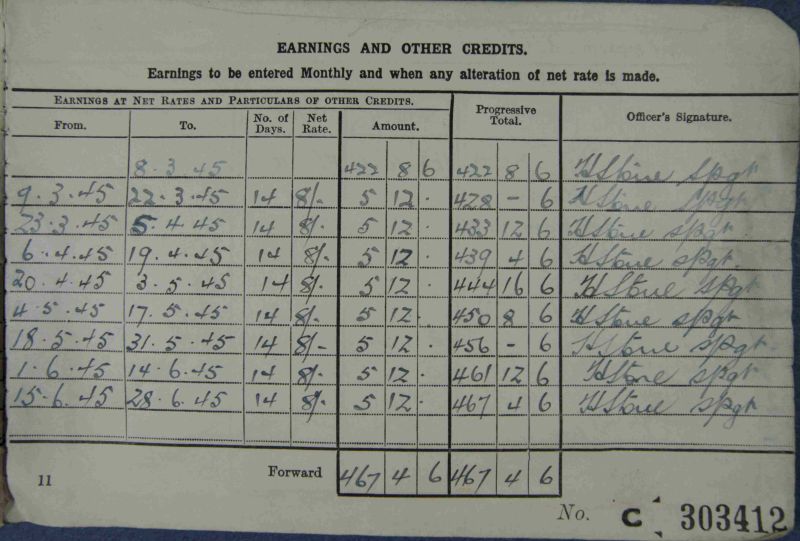 EARNINGS AND OTHER CREDITS.
Earnings to be entered Monthly and when any alteration of net rate is made.
EARNINGS AT NET RATES AND PARTICULARS OF OTHER CREDITS. Progressive Total. Officer's Signature.
From. To. No. of Days. Net Rate. Amount.
8.3.45 422 8 6 422 8 6 H Stone Spgt
9.3.45 22.3.45 14 8/- 5 12 . 428 - 6 H Stone Spgt
23.3.45 5.4.45 14 8/- 5 12 . 433 12 6 H Stone Spgt
6.4.45 19.4.45 14 8/- 5 12 . 439 4 6 H Stone Spgt
20.4.45 3.5.45 14 8/- 5 12 . 444 16 6 H Stone Spgt
4.5.45 17.5.45 14 8/- 5 12 . 450 8 6 H Stone Spgt
18.5.45 31.5.45 14 8/- 5 12 . 456 - 6 H Stone Spgt
1.6.45 14.6.45 14 8/- 5 12 . 461 12 6 H Stone Spgt
15.6.45 28.6.45 14 8/- 5 12 . 467 4 6 H Stone Spgt
11 Forward 467 4 6 467 4 6
No. C 303412